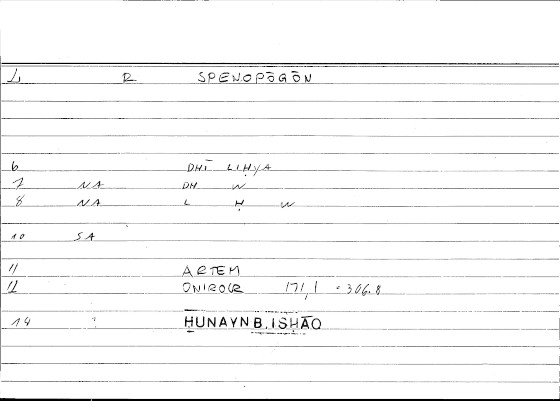 1 R SPENOPŌGŌN
6 DHĪ LIḤYA
7 NA DH W
8 NA L Ḥ W
10 SA
11 ARTEM
12 ONIROCR 171,1 = 306.8
14 ḤUNAYN B. ISḤĀQ